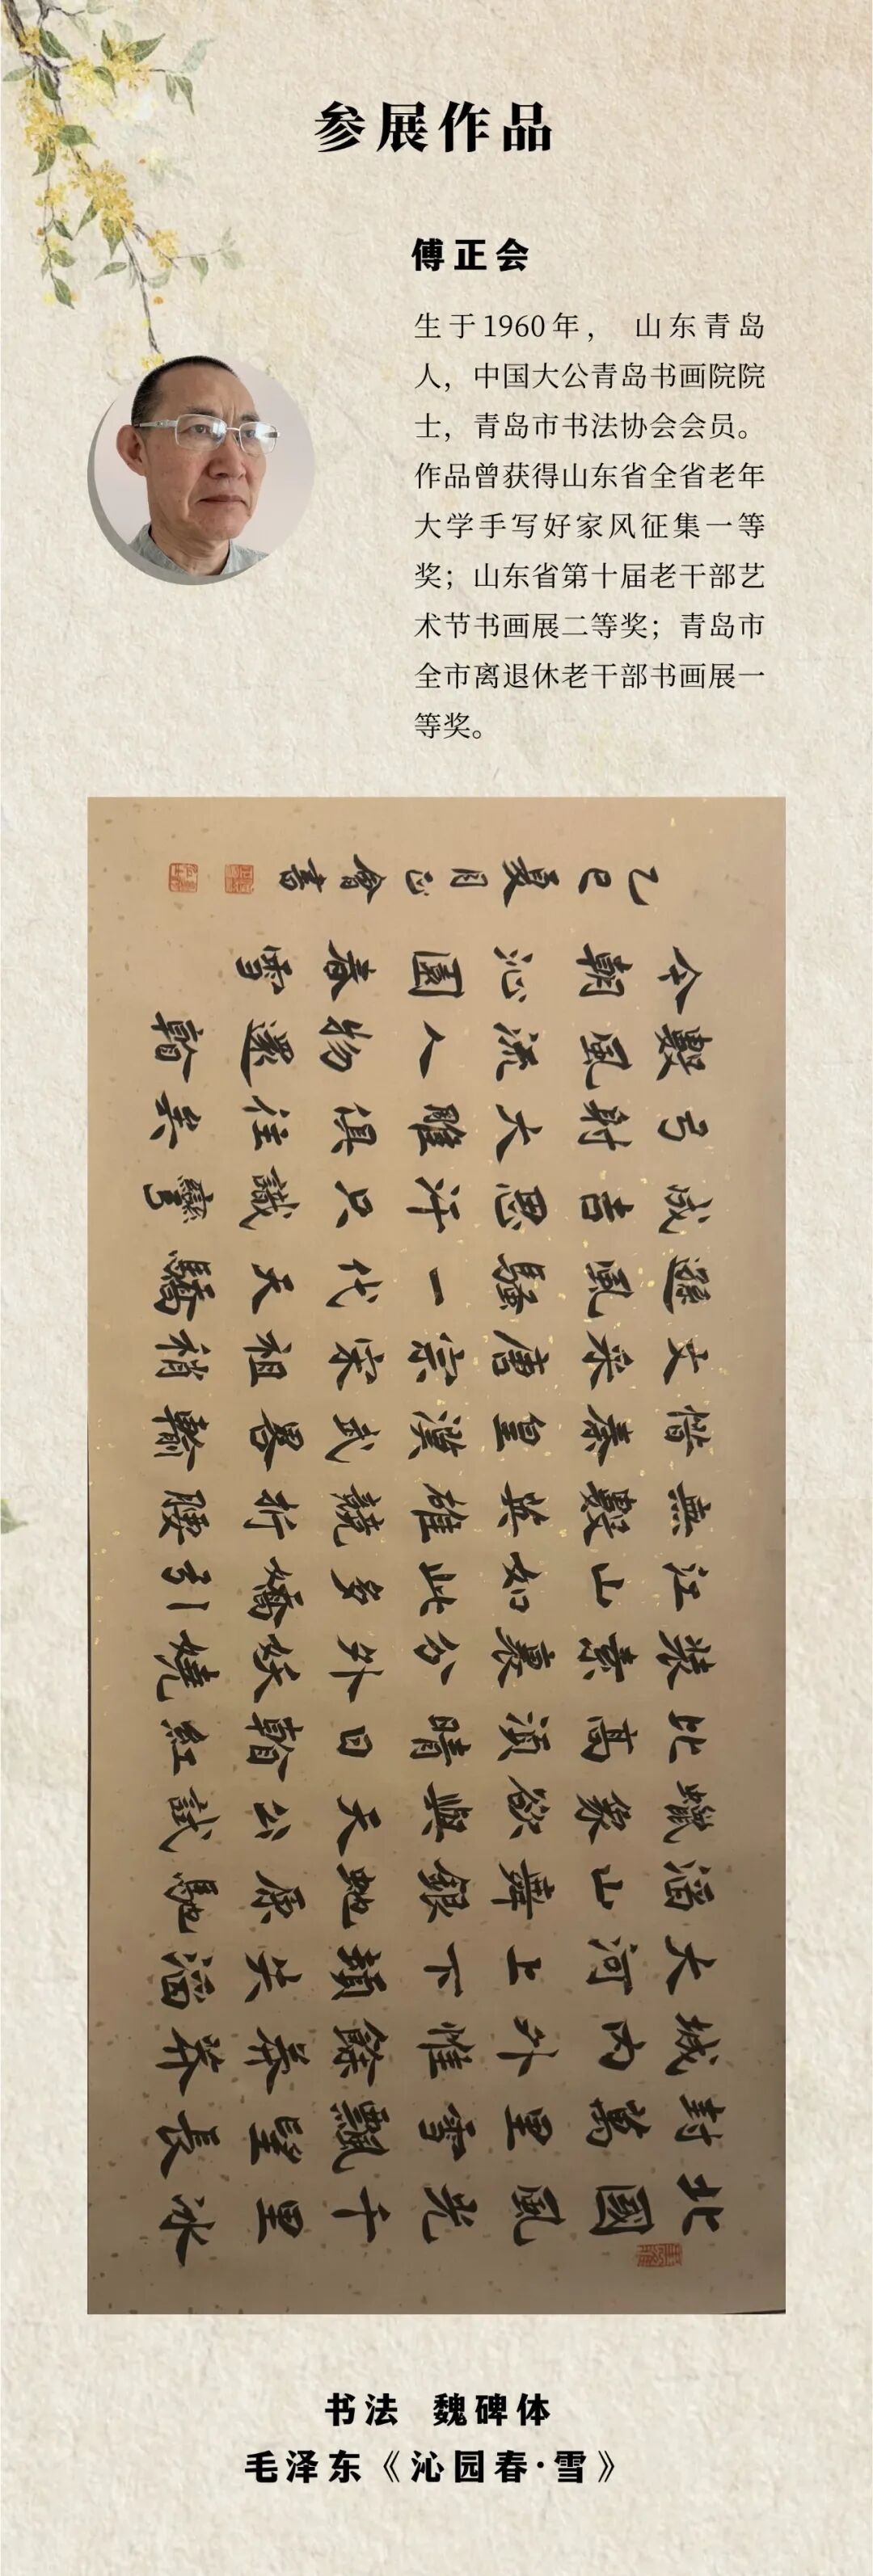 参展作品
傅正会
生于1960年， 山东青岛
人，中国大公青岛书画院院
士，青岛市书法协会会员。
作品曾获得山东省全省老年
大学手写好家风征集一等
奖；山东省第十届老干部艺
术节书画展二等奖；青岛市
全市离退休老干部书画展一
等奖。
北國風光千里冰
封萬里雪飄望長
城内外惟餘莽莽
大河上下頓失滔
滔山舞銀蛇原馳
蠟象欲與天公試
比高須晴日看紅
裝素裹分外妖嬈
江山如此多嬌引
無數英雄競折腰
惜秦皇漢武畧輸
文采唐宗宋祖稍
遜風騷一代天驕
成吉思汗只識彎
弓射大雕俱往矣
數風流人物還看
今朝沁園春雪
乙巳夏月正會書
书法 魏碑体
毛泽东《沁园春·雪》